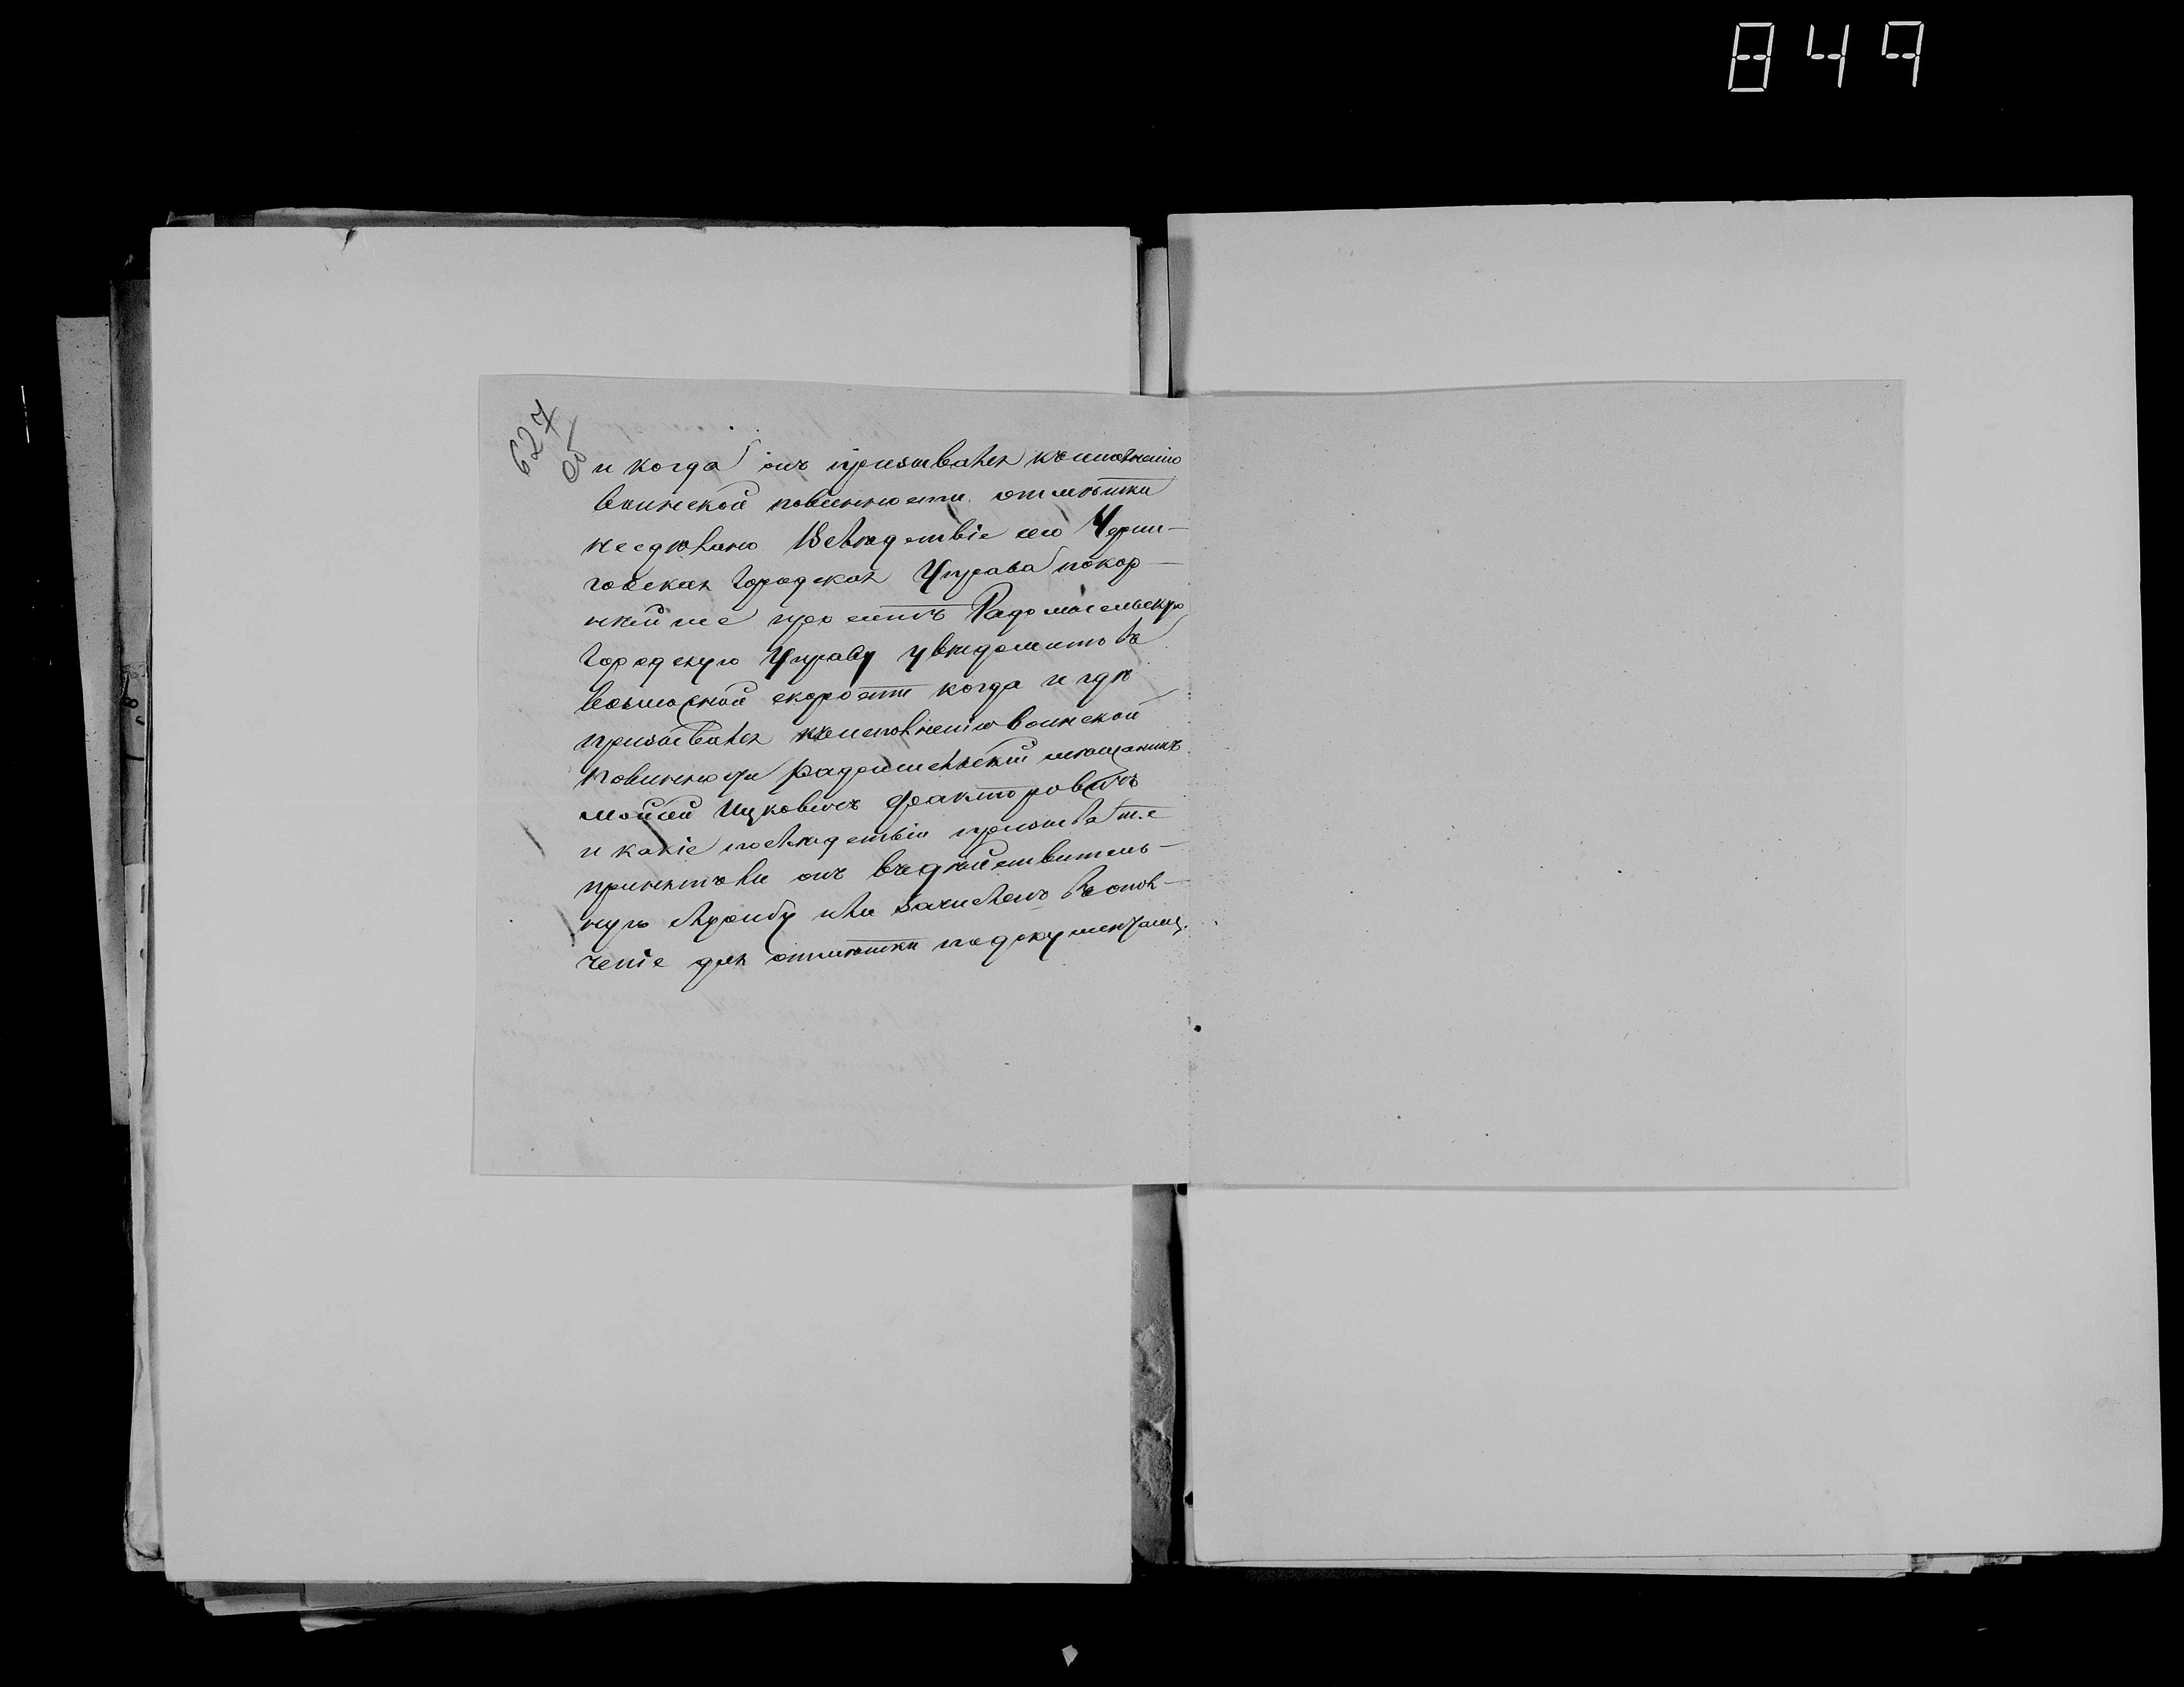 849
627
об
и когда онъ призывался къ исполненію
воинской повинности отмѣтки
несдѣлано Вслѣдствіе сего Черни-
говская Городская Управа покор-
нѣйше проситъ Радомысльскую
Городскую Управу увѣдомить въ
возможной скорости когда и гдѣ
призывался къ исполненію воинской
повинности радомысльскій мѣщанинъ
Мойсей Ицковичъ Факторовичъ
и какіе послѣдствія призыва т.е
принятъ ли онъ въ дѣйствитель-
ную службу или зачисленъ въ опол-
ченіе для отмѣтки по документамъ.